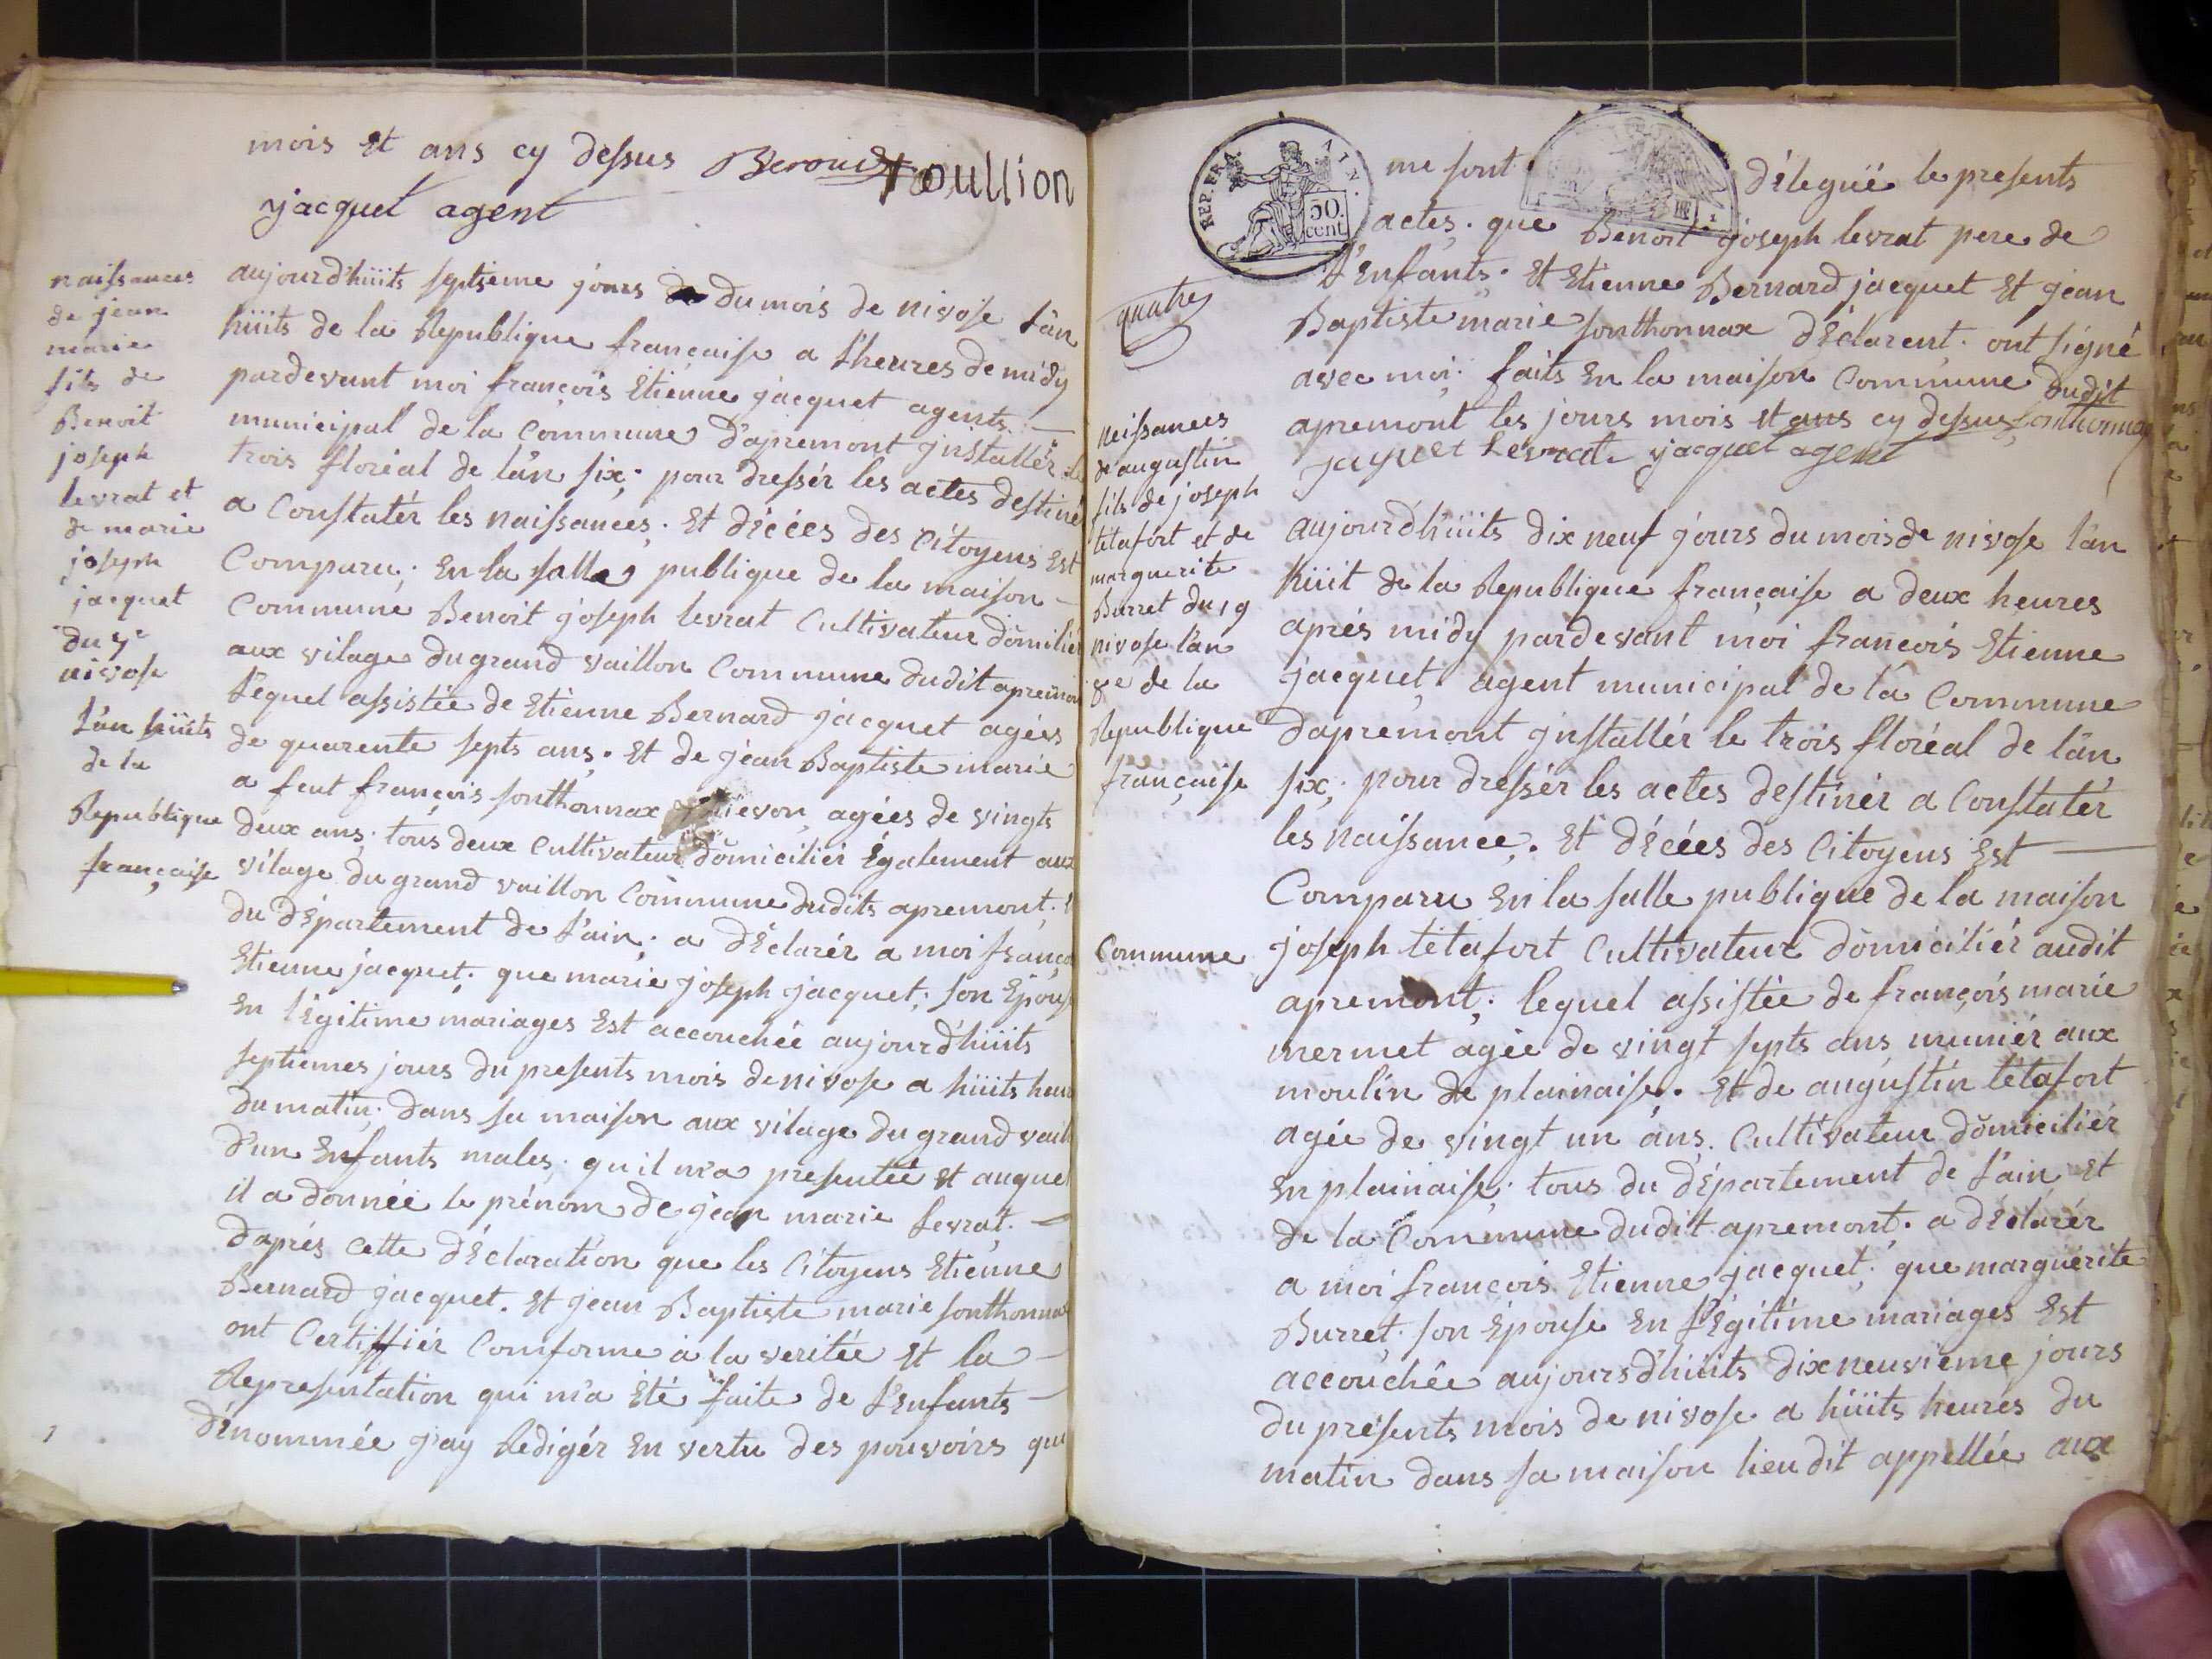 mois Et ans cy dessus Beroud
roullion
jacquet agent
naissances
de jean
marie
fils de
Benoit
joseph
levrat et
de marie
joseph
jacquet
du 7e
nivose
l'an hüits
de la
Republique
française
aujourd'hüits septieme jours du mois de nivose l'an
hüits de la Republique francaise a l'heures de midy
pardevant moi françois Etienne jacquet agents
municipal de la Commune d'apremont jnstallér le
trois floréal de l'an six; pour dressér les actes destiné
a Constatér les naissances; Et décées des Citoyens Est
Comparu; En la salle publique de la maison
Commune Benoit joseph levrat Cultivateur domiliér
aux vilage du grand vaillon Commune dudit apremon
Lequel assistée de Etienne Bernard jacquet agées
de quarente septs ans; Et de jean Baptiste marie
a feut françois sonthonnax agées de vingts
deux ans; tous deux Cultivateur domiciliér Également aux
vilage du grand vaillon Commune dudits apremont;
du département de l'ain; a déclarér a moi franço
Etienne jacquet; que marie joseph jacquet; son Épous
En légitime mariages Est accouchée aujourd'hüits
septiemes jours du presents mois de nivose a hüits heur
du matin; dans sa maison aux vilage du grand vail
d'un Enfants males; qu'il m'a presentée et auquel
il a donnée le prénom de jean marie Levrat;
daprés cette déclaration que les Citoyens Etienne
Bernard jacquet. Et jean Baptiste marie sonthonna
ont Certiffiér Comforme à la veritée Et la
Representation qui m'a Été faite de l'Enfants
dénommée j'ay Redigér En vertu des pouvoirs qui
REP. FRA. 50. cent.
me sont déleguë le presents
actes; que Benoit joseph levrat pere de
L'Enfants; Et Etienne Bernard jacquet Et jean
Baptiste marie sonthonnax déclarent; ont signé
avec moi; faits En la maison Commune dudit
apremont les jours mois et ans cy dessus sonthonnax
jaquet Levrat jacquet agent
quatre
neissances
de augustin
fils de joseph
tétafort et de
marguerite
Burret du 19
nivose l'an
8e de la
Republique
française
aujourd'hüits dix neuf jours du mois de nivose l'an
hüit de la Republique française a deux heures
aprés midy pardevant moi francois Etienne
jacquet; agent municipal de la Commune
dapremont jnstallér le trois floréal de l'an
six; pour dressér les actes destinér a Constatér
les naissance; Et décées des Citoyens Est
Comparu En la salle publique de la maison
Commune joseph tétafort Cultivateur domiciliér audit
apremont; lequel assistée de françois marie
mermet agée de vingt septs ans muniér aux
moulin de plainaise; Et de augustin tétafort
agée de vingt un ans; Cultivateur domiciliér
En plainaise; tous du département de l'ain Et
de la Commune dudit apremont; a déclarér
a moi francois Etienne jacquet; que marguerite
Burret; son Épouse En Légitime mariages Est
accouchée aujoursd'hüits dixneuvieme jours
du présents mois de nivose a hüits heures du
matin dans sa maison lieu dit appellée aux